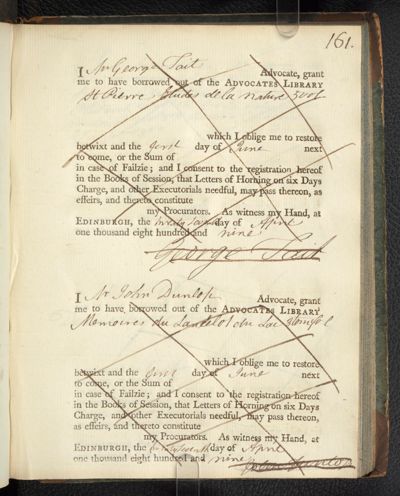 161.
I Mr George Tait Advocate, grant
me to have borrowed out of the ADVOCATES LIBRARY
St Pierre Etudes de la nature 5 vol
which I oblige me to restore
betwixt and the first day of June next
to come, or the Sum of
in case of Failzie; and I consent to the registration hereof
in the Books of Session, that Letters of Horning on six Days
Charge, and other Executorials needful, may pass thereon, as
effeirs, and thereto constitute
my Procurators. As witness my Hand, at
EDINBURGH, the day of April
one thousand eight hundred and nine
George Tait
I Mr John Dunlop Advocate, grant
me to have borrowed out of the ADVOCATES LIBRARY,
Memoires du Lancelot du Lac
which I oblige me to restore
betwixt and the first day of June next
to come, or the Sum of
in case of Failzie; and I consent to the registration hereof
in the Books of Session, that Letters of Horning on six Days
Charge, and other Executorials needful, may pass thereon,
as effeirs, and thereto constitute
my Procurators. As witness my Hand, at
EDINBURGH, the day of April
one thousand eight hundred and nine
John Dunlop